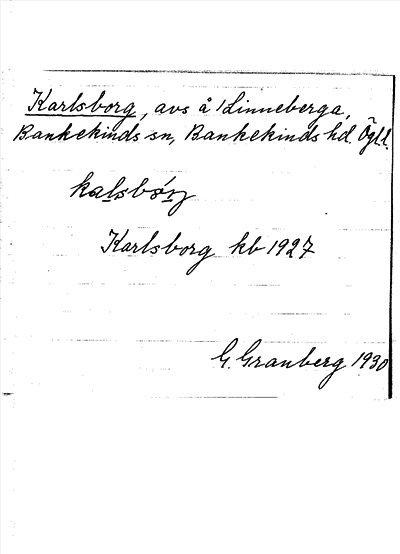 Karlsborg, avs å Linneberga,
Bankekinds sn, Bankekinds hd. Ögl.
Karlsborg kb 1927
G. Granberg 1930